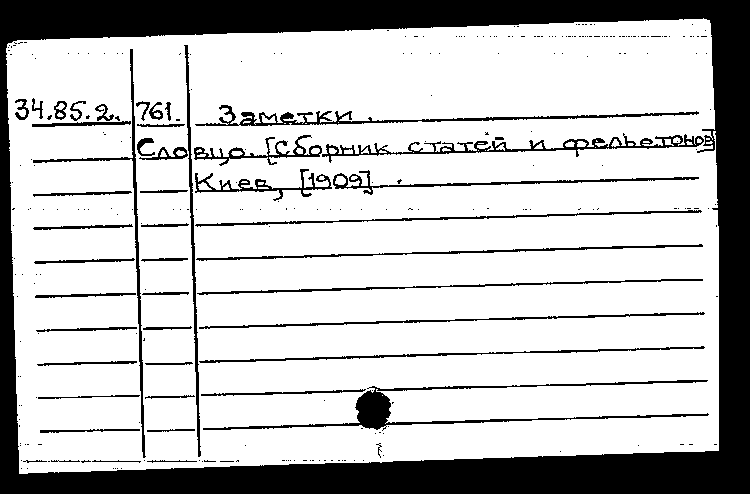 34.85.2. 761. Заметки.
Словцо. [Сборник статей и фельетонов]
Киев, [1909].